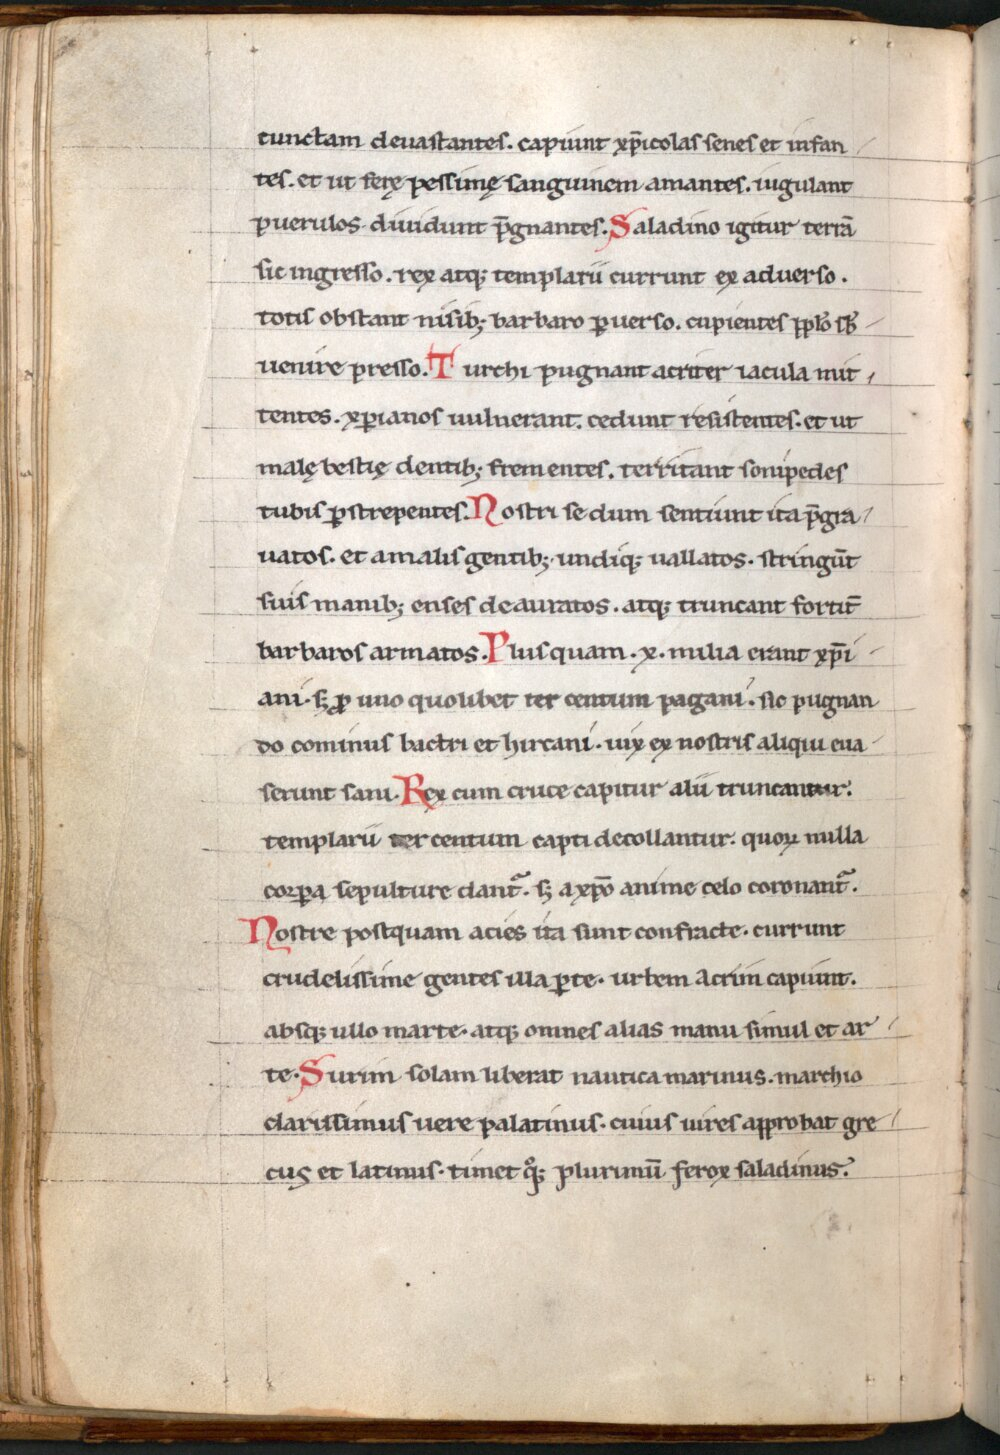 cunctam deuastantes. capiunt xp̄icolas senes et infan-
tes. et ut ferę pessimę sanguinem amantes. iugulant
puerulos. diuidunt p̄gnantes. Saladino igitur terrā
sic ingresso. rex atq; templarii currunt ex aduerso.
totis obstant nisib; barbaro ꝑuerso. cupientes pplo sb̄-
uenire presso. Turchi pugnant acriter iacula mit-
tentes. xꝑianos uulnerant. cedunt resistentes. et ut
malę bestię dentib; frementes. territant sonipedes
tubis ꝑstrepentes. Nostri se dum sentiunt ita p̄gra-
uatos. et a malis gentib; undiq; uallatos. stringūt
suis manib; enses deauratos. atq; truncant fortit̄
barbaros armatos. Plus quam .x. milia erant xp̄i-
ani. sꝫ ꝓ uno quolibet ter centum pagani. sic pugnan
do cominus bactri et hircani. uix ex nostris aliqui eua-
serunt sani. Rex cum cruce capitur alii truncantur.
templarii ter centum capti decollantur. quoꝝ nulla
corꝑa sepulture dant᷑. sꝫ a xp̄o anime celo coronant᷑.
Nostre postquam acies ita sunt confracte. currunt
crudelissime gentes illa ꝑte. urbem Acrim capiunt.
absq; ullo marte. atq; omnes alias manu simul et ar-
te. Surim solam liberat nautica marinus. marchio
clarissimus uere palatinus. cuius uires approbat gre-
cus et latinus. timet qͦq; plurimū ferox saladinus.